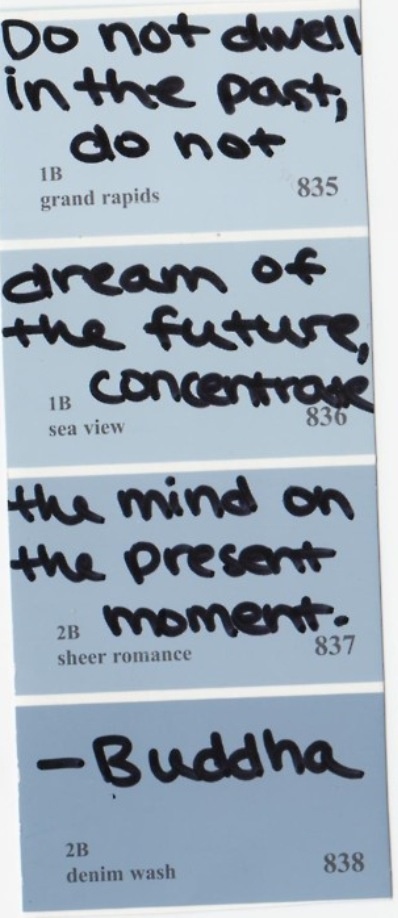 Do not dwell
in the past,
do not
1B
grand rapids 835
dream of
the future,
concentrate
1B 836
sea view
the mind on
the present
moment.
2B
sheer romance 837
- Buddha
2B
denim wash 838